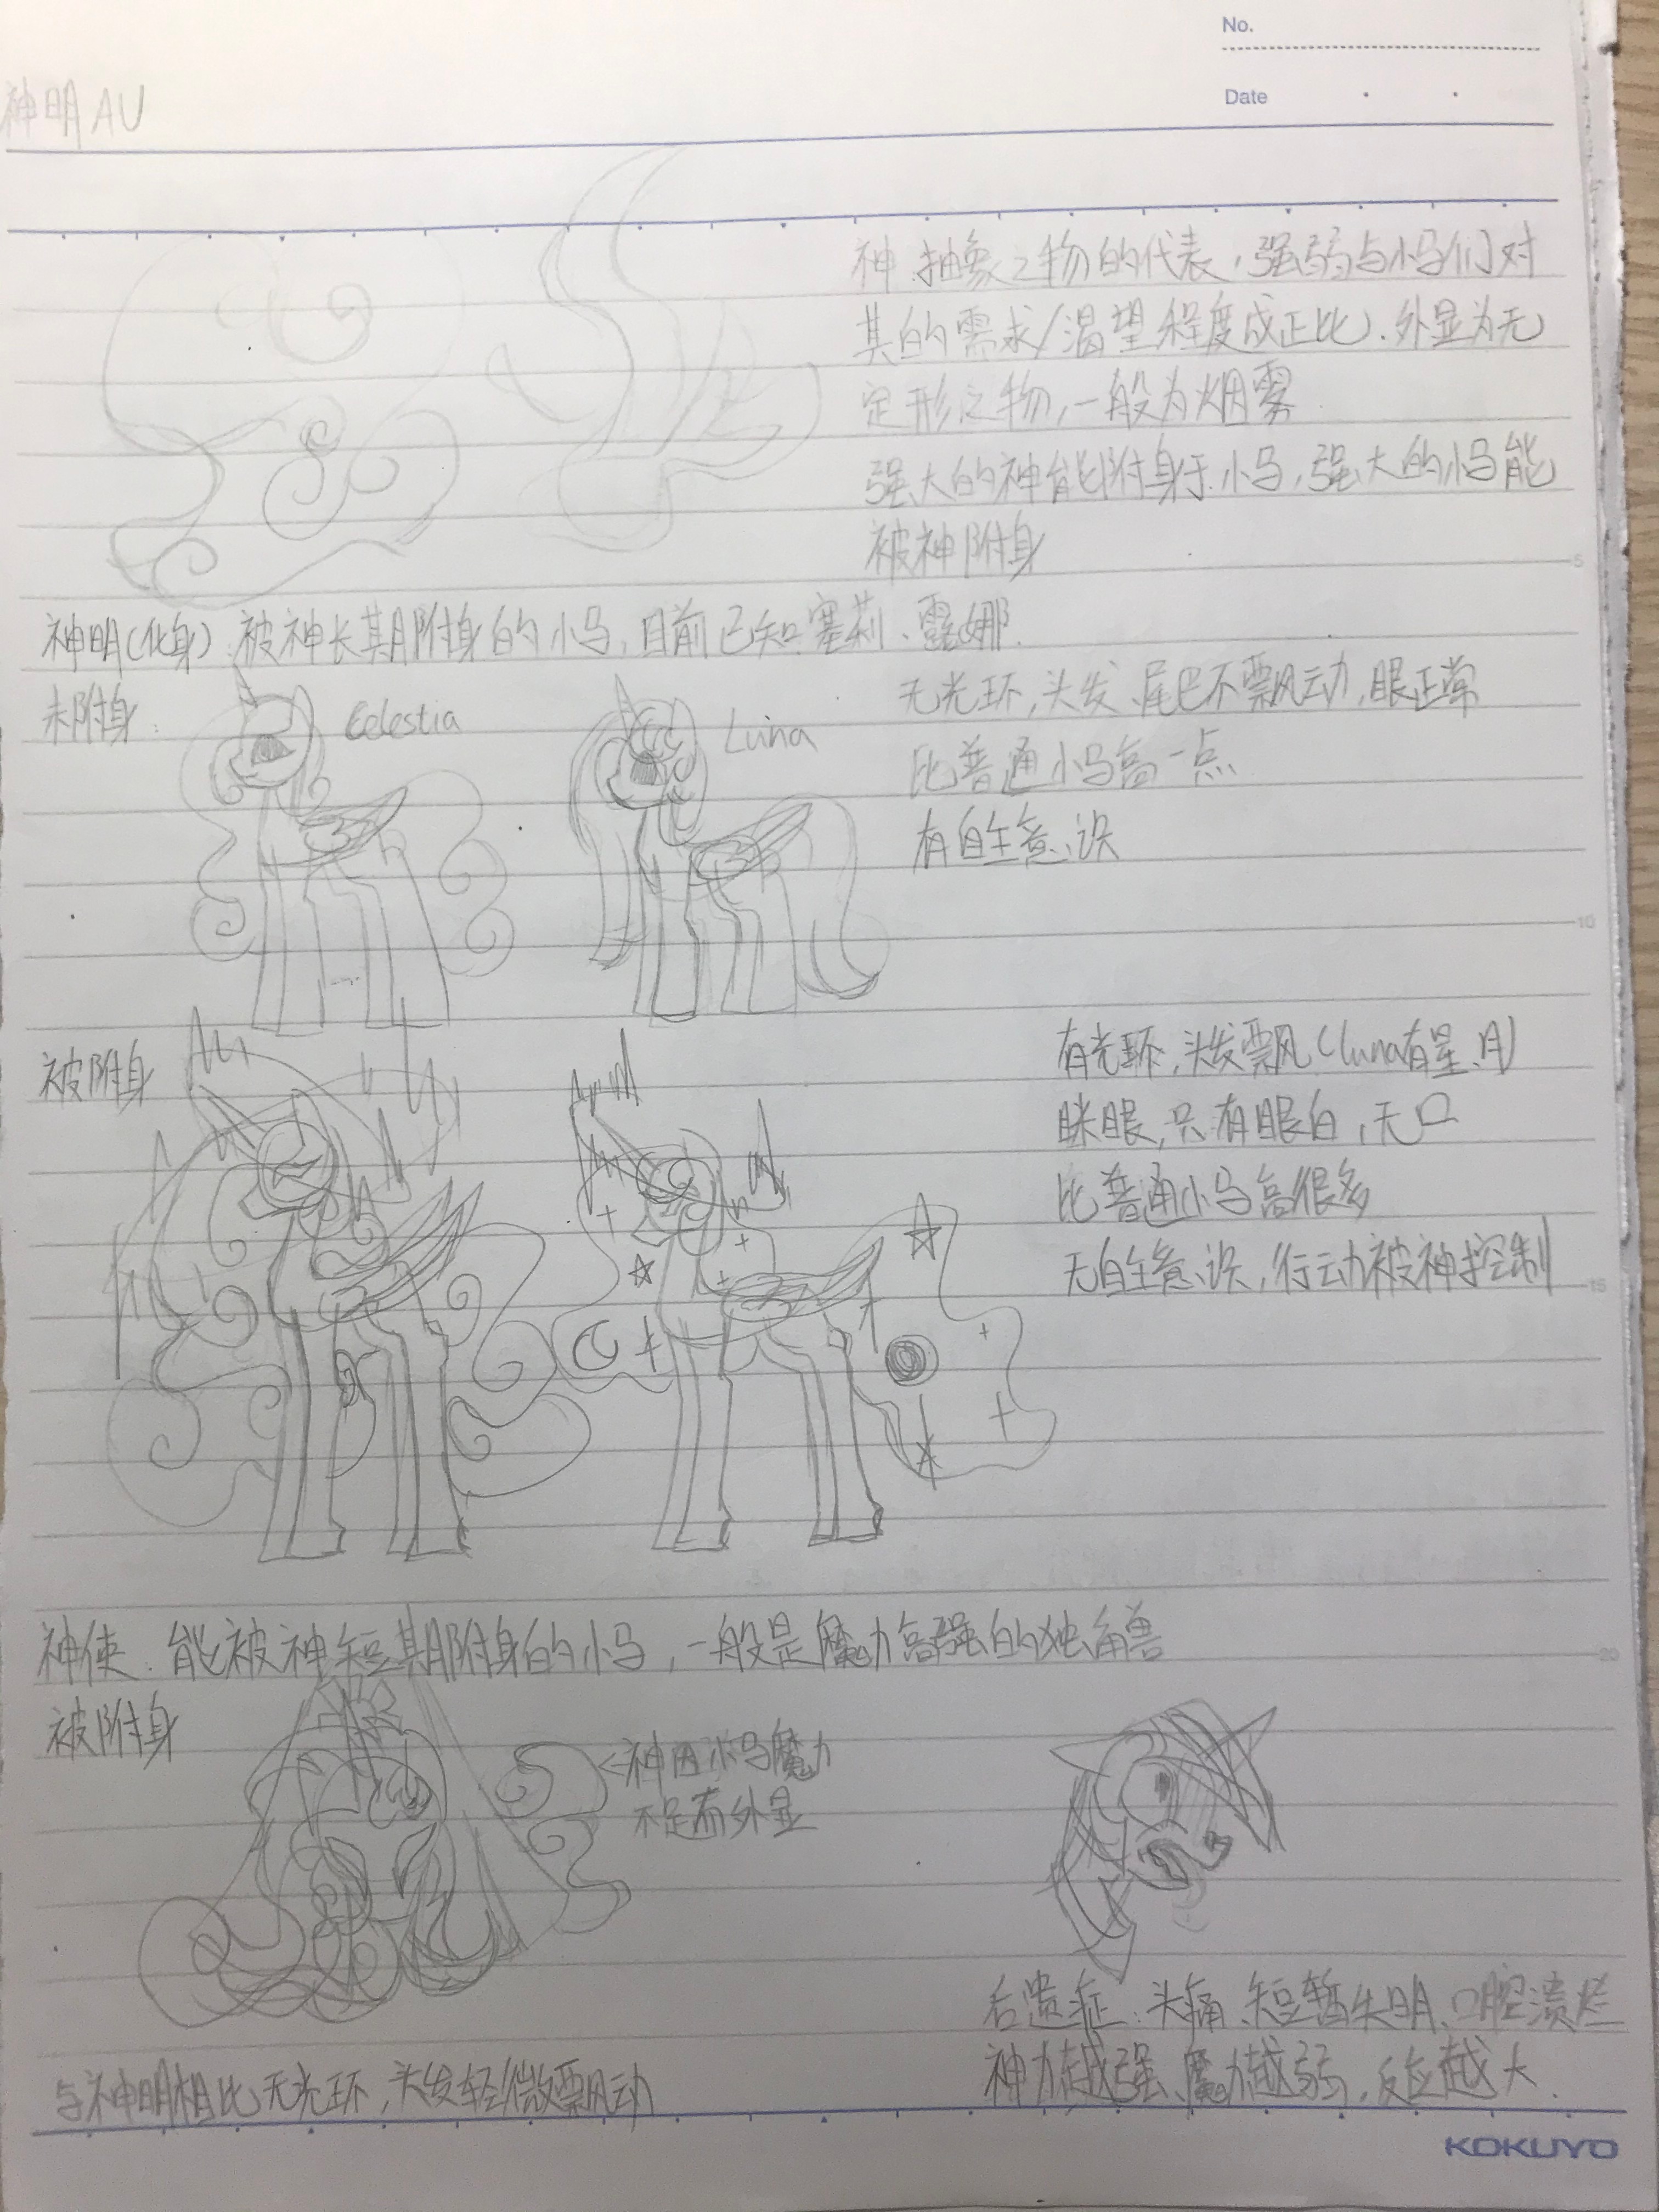 No.
Date
神明AU
神:抽象之物的代表,强弱与小马们对
其的需求/渴望程度成正比.外显为无
定形之物,一般为烟雾
强大的神能附身于小马,强大的小马能
被神附身
神明(化身):被神长期附身的小马,目前已知塞莉、露娜.
未附身:
Celestia
Luna
无光环,头发、尾巴不飘动,眼正常
比普通小马高一点
有自主意识
被附身
有光环,头发飘(luna有星、月)
眯眼,只有眼白,无口
比普通小马高很多
无自主意识,行动被神控制
神使:能被神短期附身的小马,一般是魔力高强的独角兽
被附身
<神因小马魔力
不足而外显
后遗症:头痛、短暂失明、口腔溃烂
神力越强、魔力越弱,反应越大.
与神明相比无光环,头发轻微飘动
KOKUYO
5
10
15
20